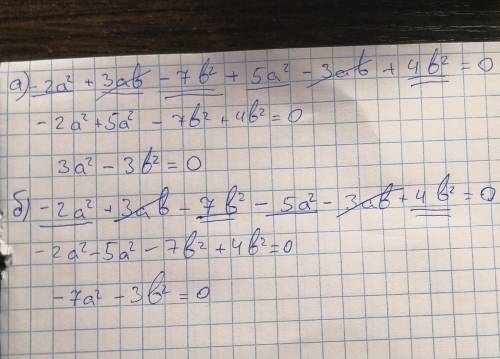 а) -2a² + 3ab - 7b² + 5a² - 3ab + 4b² = 0
-2a² + 5a² - 7b² + 4b² = 0
3a² - 3b² = 0
б) -2a² + 3ab - 7b² - 5a² - 3ab + 4b² = 0
-2a² - 5a² - 7b² + 4b² = 0
-7a² - 3b² = 0